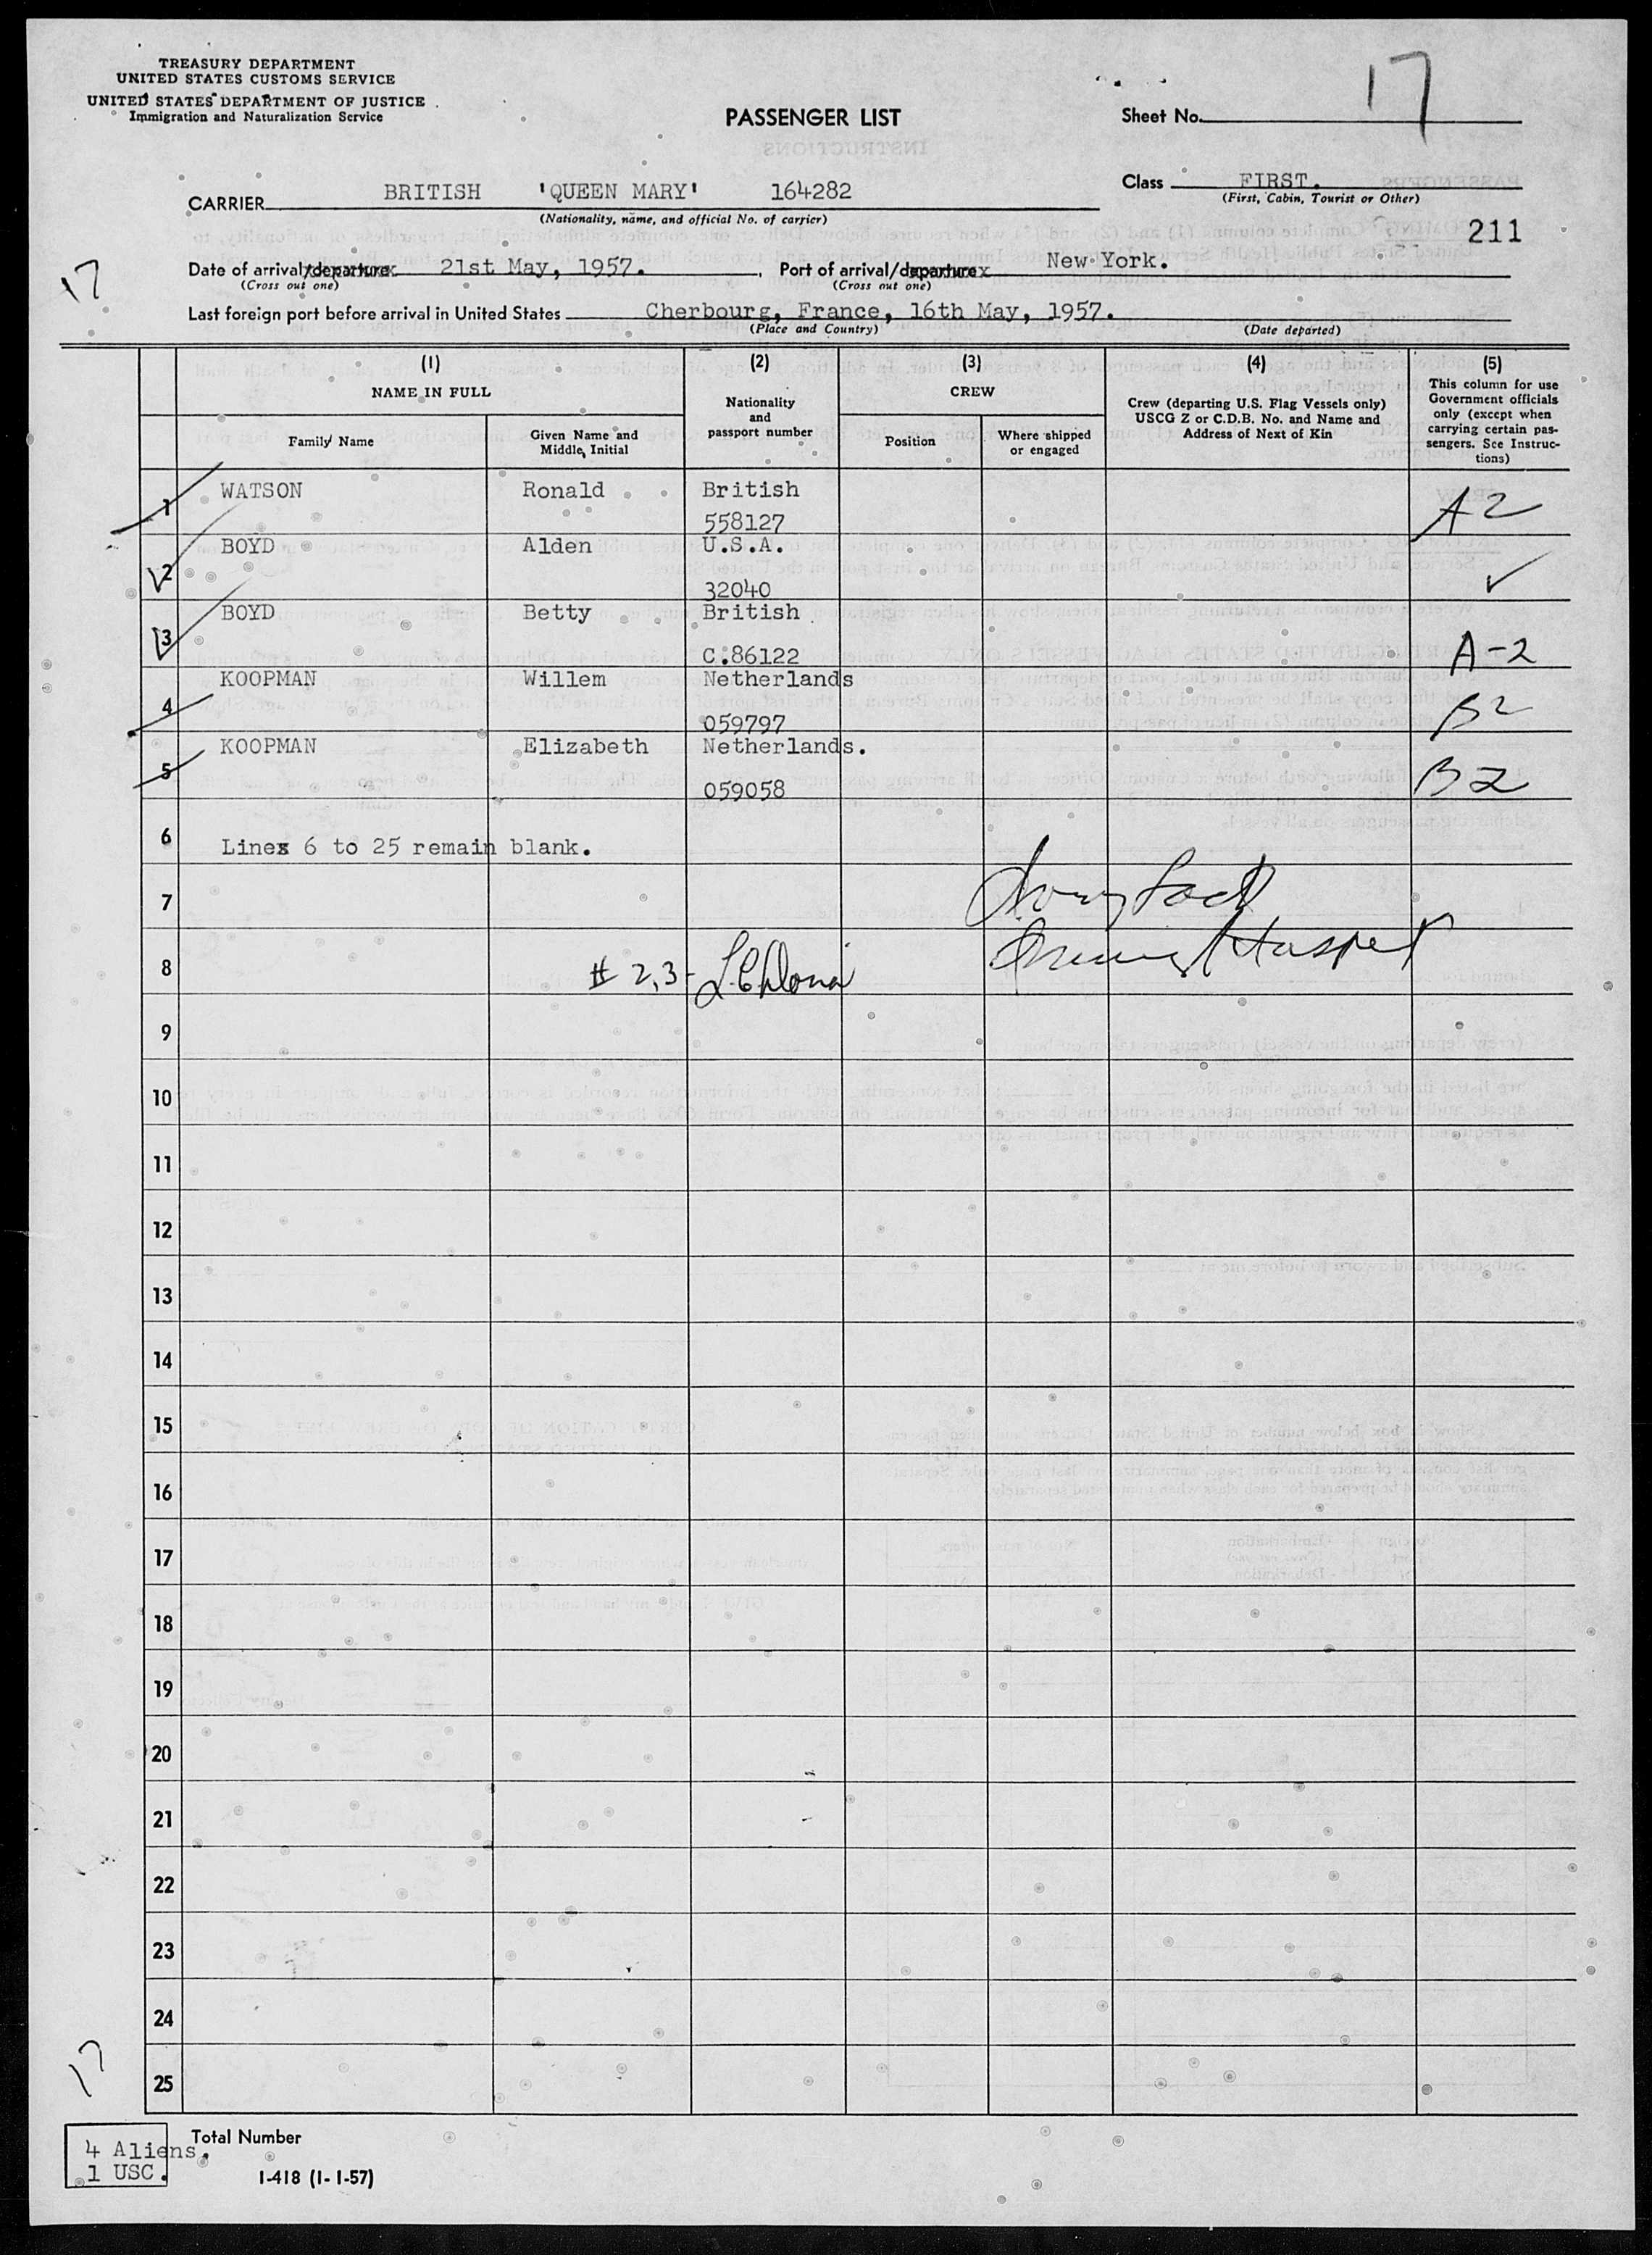 TREASURY DEPARTMENT
UNITED STATES CUSTOMS SERVICE
UNITED STATES DEPARTMENT OF JUSTICE
Immigration and Naturalization Service
PASSENGER LIST
Sheet No. 17
CARRIER BRITISH 'QUEEN MARY' 164282
(Nationality, name, and official No. of carrier)
Class FIRST.
(First, Cabin, Tourist or Other)
211
17
Date of arrival/departure 21st May, 1957. , Port of arrival/departure New York.
(Cross out one) (Cross out one)
Last foreign port before arrival in United States Cherbourg, France, 16th May, 1957.
(Place and Country) (Date departed)
(1) (2) (3) (4) (5)
NAME IN FULL
Family Name
Given Name and
Middle Initial
Nationality
and
passport number
CREW
Position
Where shipped
or engaged
Crew (departing U.S. Flag Vessels only)
USCG Z or C.D.B. No. and Name and
Address of Next of Kin
This column for use
Government officials
only (except when
carrying certain pas-
sengers. See Instruc-
tions)
1 WATSON Ronald British A2
558127
2 BOYD Alden U.S.A. ✓
32040
3 BOYD Betty British A-2
C.86122
4 KOOPMAN Willem Netherlands B2
059797
5 KOOPMAN Elizabeth Netherlands. B2
059058
6 Lines 6 to 25 remain blank.
7
8 # 2,3-
9
10
11
12
13
14
15
16
17
18
19
20
21
22
23
24
25
17
4 Aliens.
1 USC.
Total Number
I-418 (1-1-57)